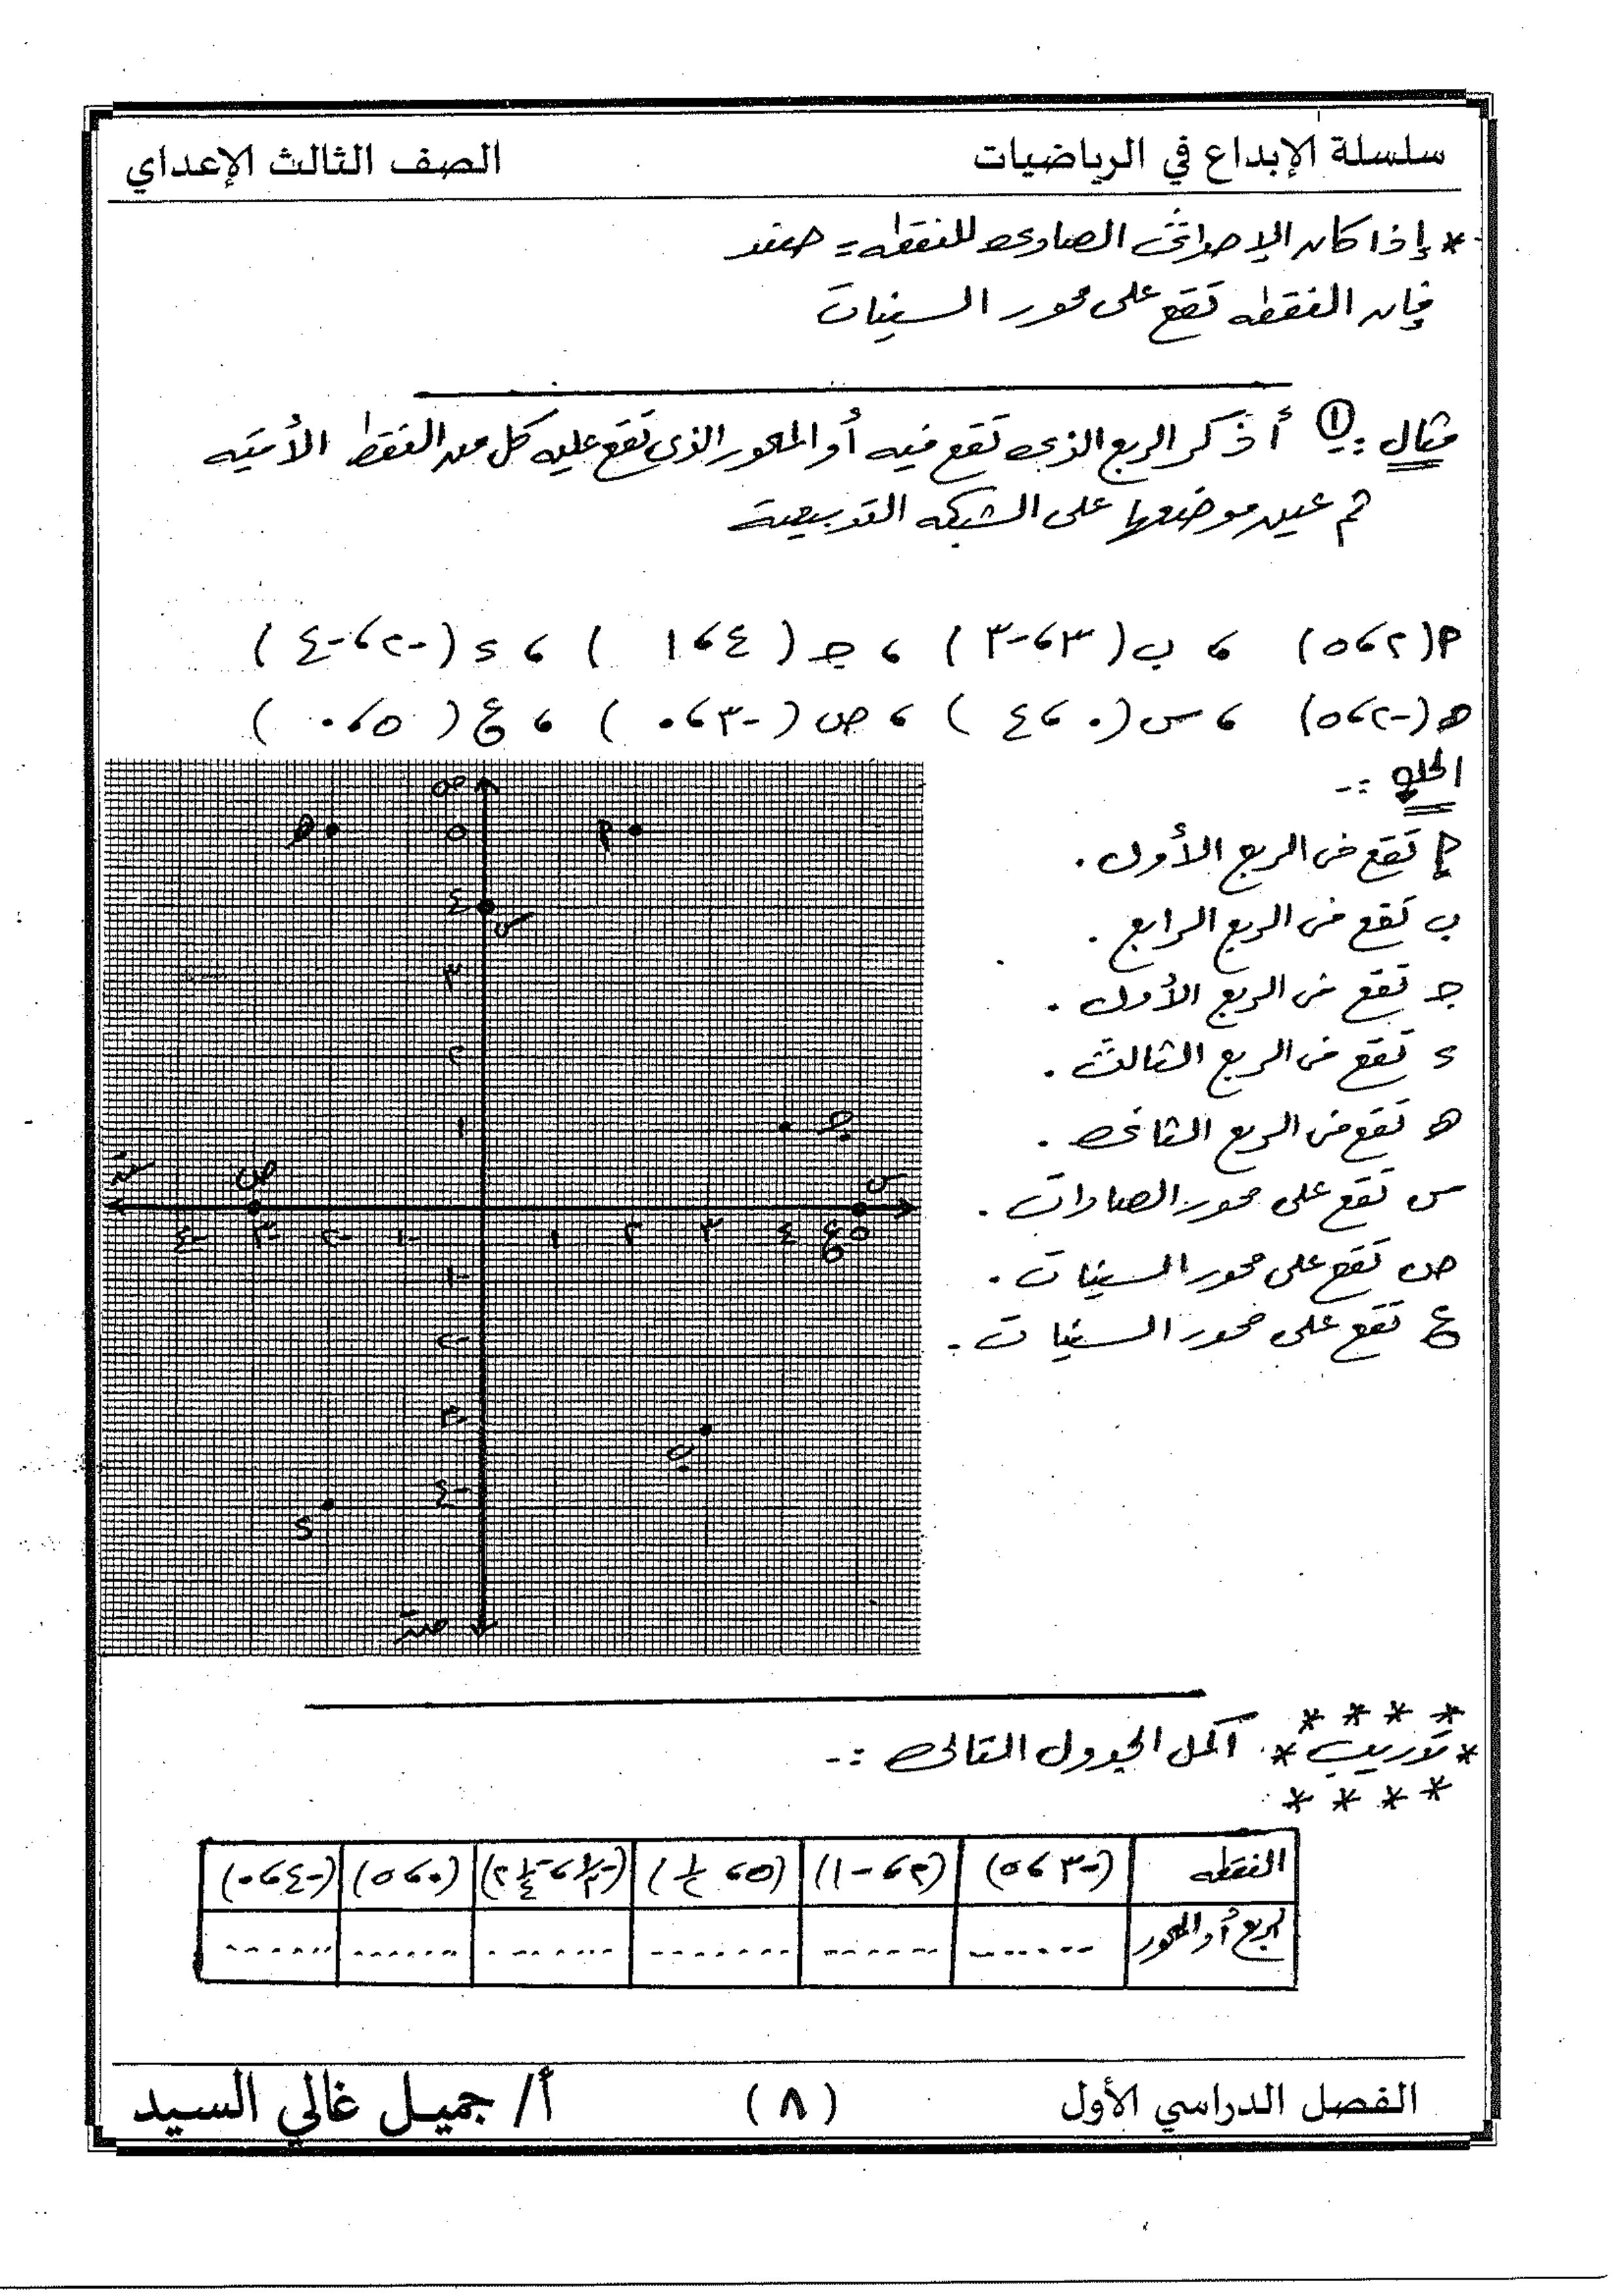 سلسلة الإبداع في الرياضيات الصف الثالث الإعداي
* إذا كان الإحداثى الصادى للنقطه = صفر
فإن النقطه تقع على محور السينات
مثال ①:- أذكر الربع الذى تقع فيه أو المحور الذى تقع عليه كل من النقط الأتيه
ثم عين موضعها على الشبكه التربيعية
P(٢، ٥) ، ب(٣، -٣) ، جـ(٤، ١) ، ء(-٢، -٤)
هـ(-٢، ٥) ، س(٠، ٤) ، ص(-٣، ٠) ، ع(٥، ٠)
الحل :-
P تقع فى الربع الأول .
ب تقع فى الربع الرابع .
جـ تقع فى الربع الأول .
ء تقع فى الربع الثالث .
هـ تقع فى الربع الثانى .
س تقع على محور الصادات .
ص تقع على محور السينات .
ع تقع على محور السينات .
ص
هـ ٥ P
٤ س
٣
٢
١ جـ
سَ ص س
-٤ -٣ -٢ -١ ١ ٢ ٣ ٤ ع ٥
-١
-٢
-٣ ب
-٤
ء
صَ
* * * *
* تدريب * أكمل الجدول التالى :-
* * * *
النقطه (-٣، ٥) (٢، -١) (٥، ١/٢) (-١/٢، -٢ ١/٤) (٠، ٥) (-٤، ٠)
لربع أو المحور ....... ....... ....... ....... ....... .......
الفصل الدراسي الأول (٨) أ/ جميل غالي السيد